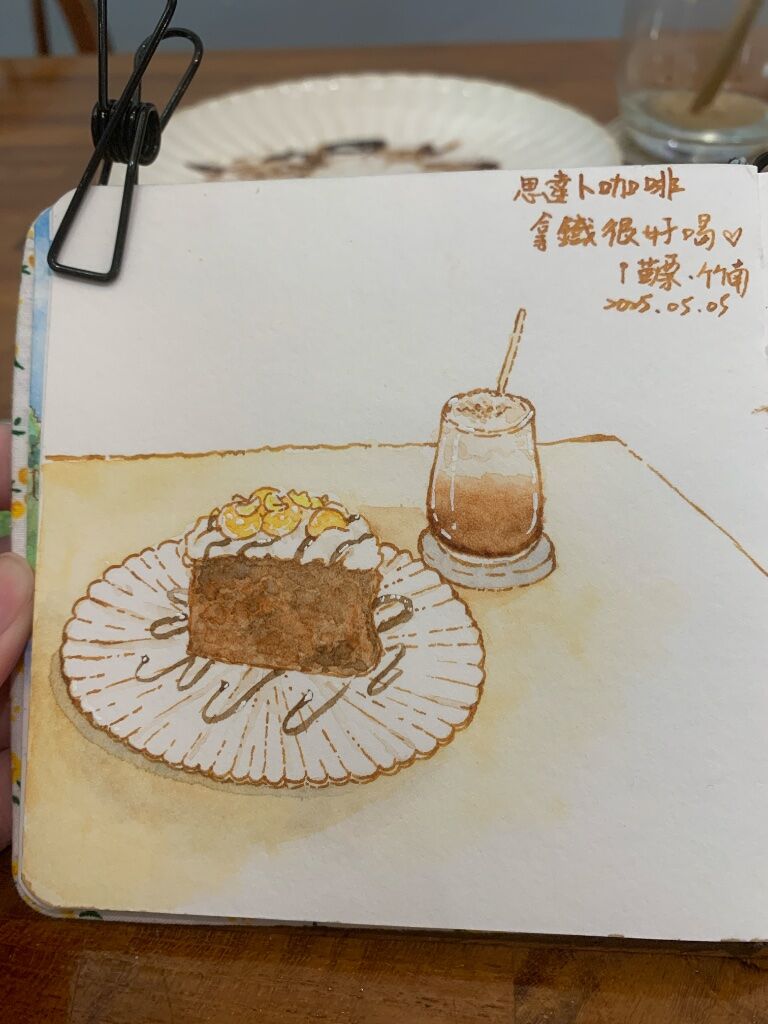 思達卜咖啡
拿鐵很好喝♡
竹南
2025.05.05